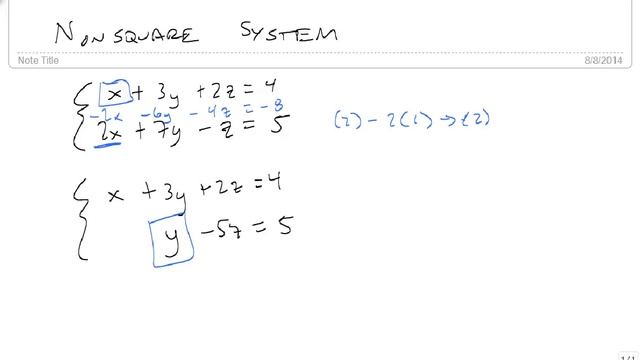 NONSQUARE SYSTEM
Note Title
8/8/2014
x + 3y + 2z = 4
-2x -6y -4z = -8
2x + 7y - z = 5
(2) - 2(1) → (2)
x + 3y + 2z = 4
y - 5z = 5
1/1